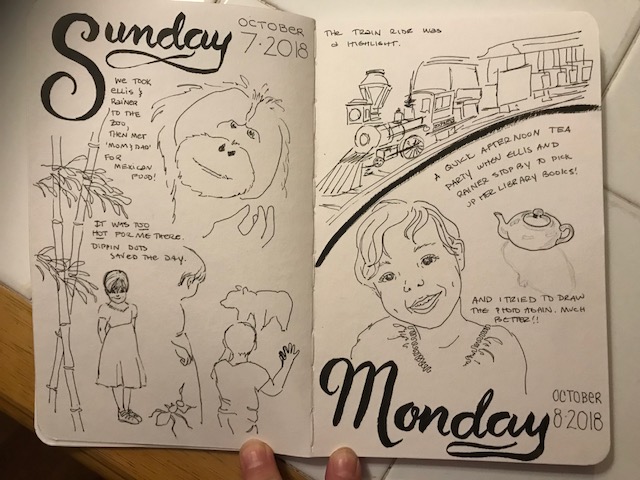 Sunday
OCTOBER
7·2018
WE TOOK
ELLIS &
RAINER
TO THE
ZOO,
THEN MET
'MOM & DAD'
FOR
MEXICAN
FOOD!
IT WAS TOO
HOT FOR ME THERE.
DIPPIN DOTS
SAVED THE DAY.
THE TRAIN RIDE WAS
A HIGHLIGHT.
A QUICK AFTERNOON TEA
PARTY WHEN ELLIS AND
RAINER STOP BY TO PICK
UP HER LIBRARY BOOKS!
AND I TRIED TO DRAW
THE PHOTO AGAIN. MUCH
BETTER!!
Monday
OCTOBER
8·2018